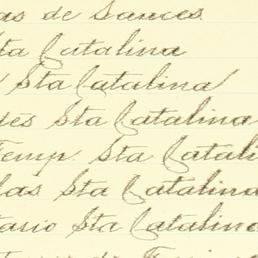 as de Sances
Sta Catalina
Sta Catalina
des Sta Catalina
Temp. Sta Catali
las Sta Catalina
tario Sta Catalina